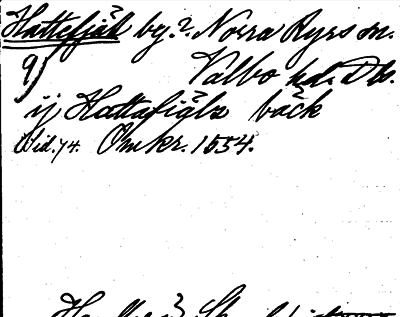 Hattefjäl by? Norra Ryrs sn.
9) Valbo hd. Dls.
ij Hattafiälz bäck
Bid. 74. Omkr. 1554.